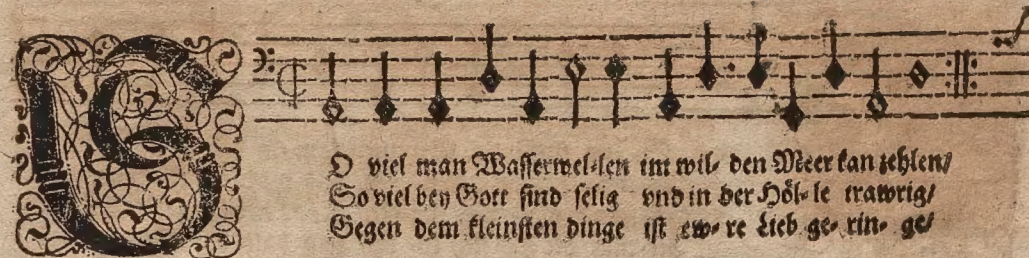 SO viel man Wasserwel-len im wil- den Meer kan zehlen/
So viel bey Gott sind selig vnd in der Höl- le trawrig/
Gegen dem kleinsten dinge ist ew- re Lieb ge- rin- ge/